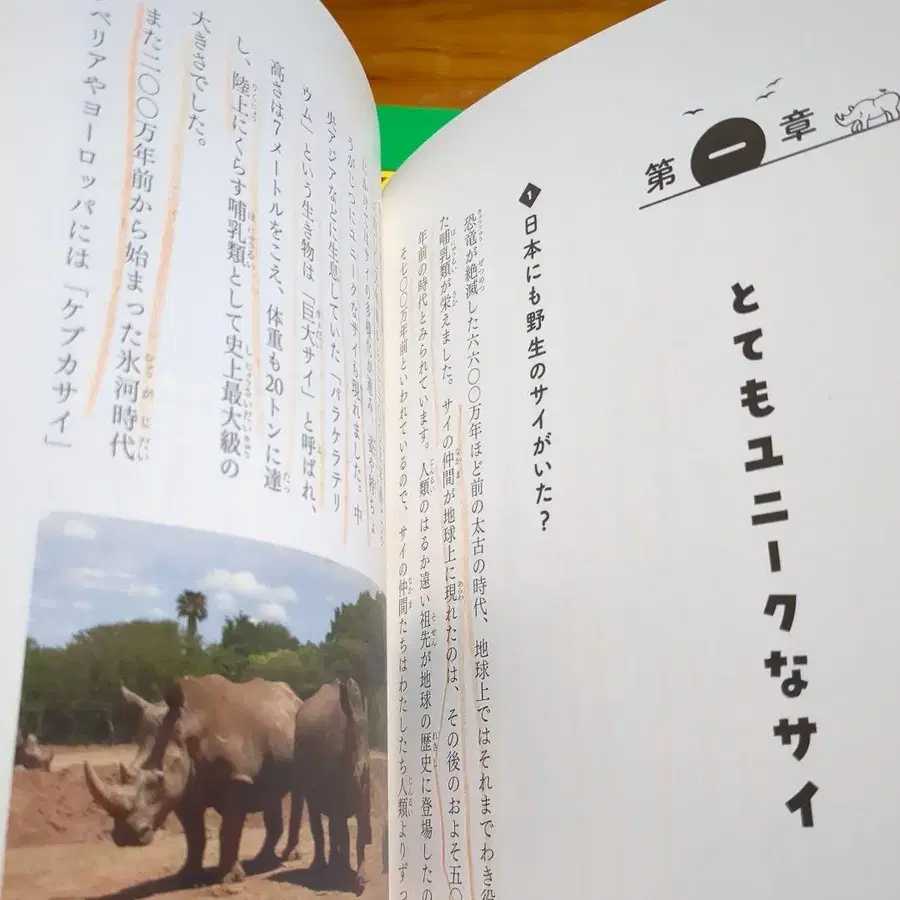 第一章
とてもユニークなサイ
1 日本にも野生のサイがいた?
恐竜が絶滅した六六〇〇万年ほど前の太古の時代、地球上ではそれまでわき役
た哺乳類が栄えました。サイの仲間が地球上に現れたのは、その後のおよそ五〇
年前の時代とみられています。人類のはるか遠い祖先が地球の歴史に登場したの
そ七〇〇万年前といわれているので、サイの仲間たちはわたしたち人類よりずっ
ニークなサイも現れました。中
央アジアなどに生息していた「パラケラテリ
ウム」という生き物は「巨大サイ」と呼ばれ、
高さは7メートルをこえ、体重も20トンに達
し、陸上にくらす哺乳類として史上最大級の
大きさでした。
また二〇〇万年前から始まった氷河時代
ベリアやヨーロッパには「ケブカサイ」